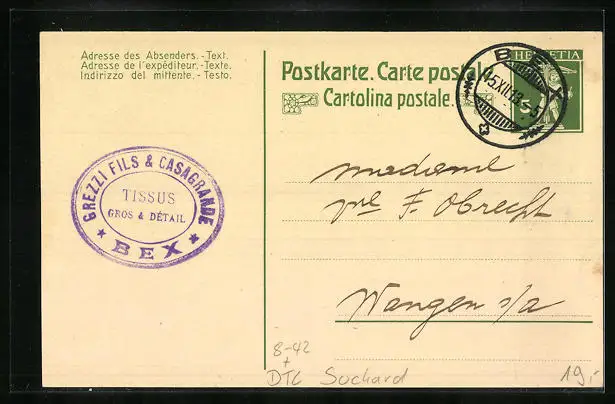 Adresse des Absenders. - Text.
Adresse de l'expéditeur. - Texte.
Indirizzo del mittente. - Testo.
Postkarte. Carte postale.
Cartolina postale.
HELVETIA
5
BEX
GREZZI FILS & CASAGRANDE
TISSUS
GROS & DÉTAIL
BEX
Madame
F. Obrecht
Wangen s/a
8-42
+
Suchard
19.-